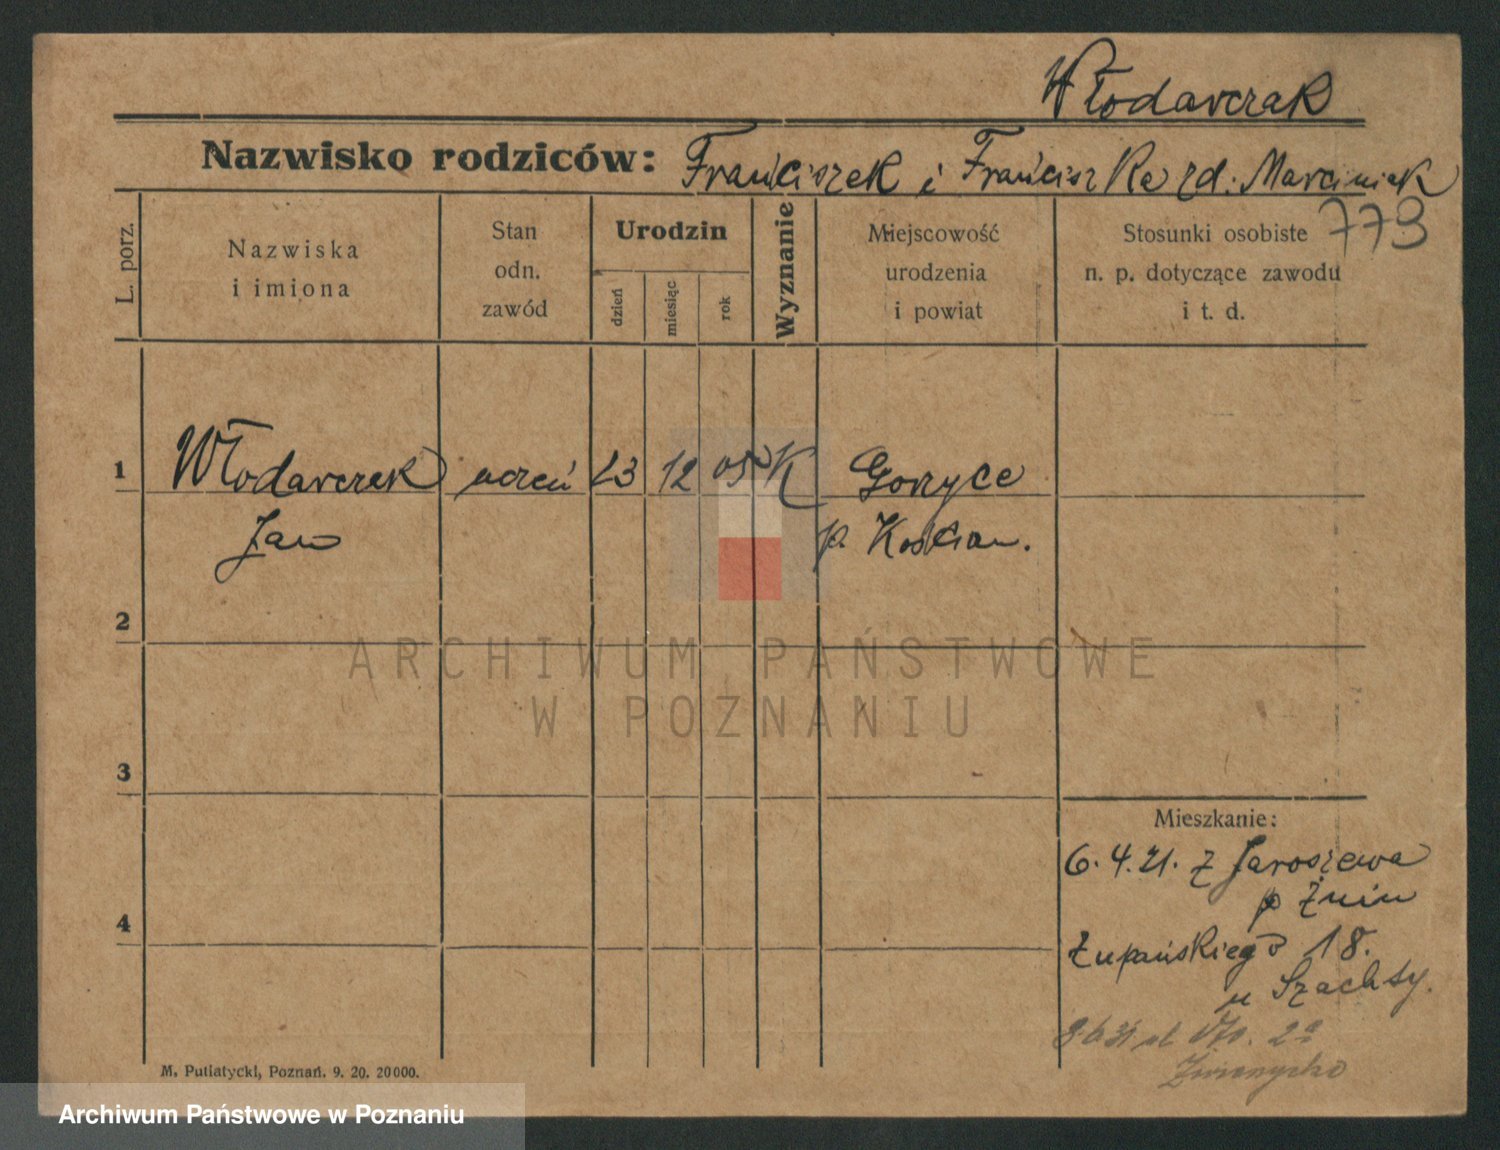 Włodarczak
Nazwisko rodziców: Franciszek i Franciszka zd. Marciniak
779
L. porz.
Nazwiska
i imiona
Stan
odn.
zawód
Urodzin
dzień
miesiąc
rok
Wyznanie
Miejscowość
urodzenia
i powiat
Stosunki osobiste
n. p. dotyczące zawodu
i t. d.
1
Włodarczak uczeń 23 12 05 K Goryce
Jan p. Kościan.
2
ARCHIWUM PAŃSTWOWE
W POZNANIU
3
Mieszkanie:
6.4.21. z Jaroszewa
p Żnin
4
Żupańskiego 18.
u Szachty.
2a
M. Putiatycki, Poznań. 9. 20. 20000.
Archiwum Państwowe w Poznaniu